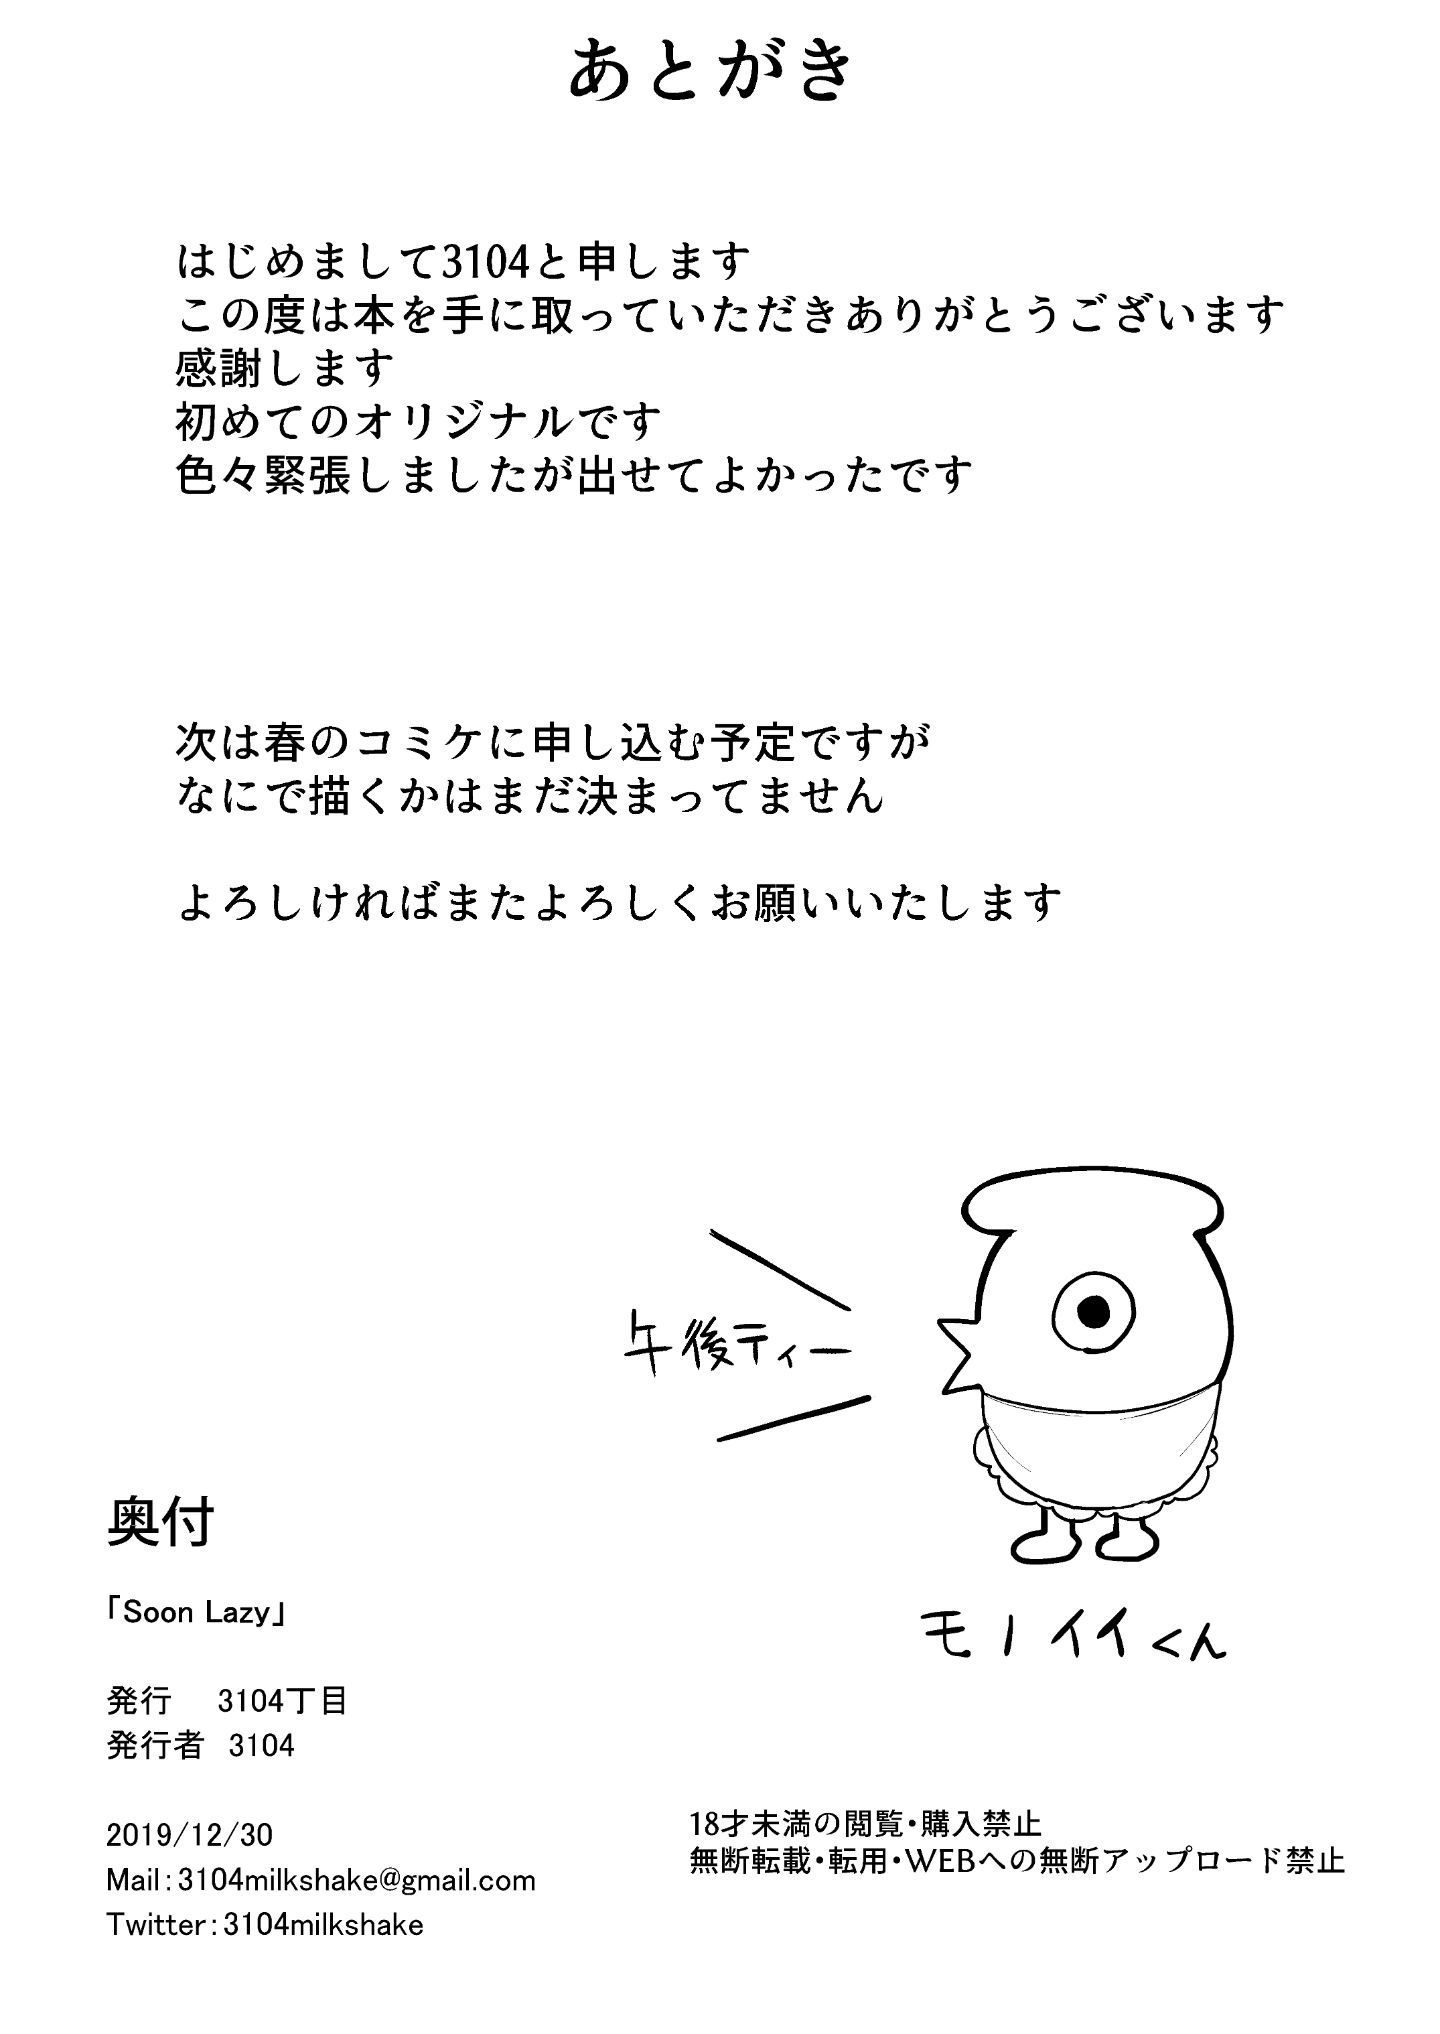 あとがき
はじめまして3104と申します
この度は本を手に取っていただきありがとうございます
感謝します
初めてのオリジナルです
色々緊張しましたが出せてよかったです
次は春のコミケに申し込む予定ですが
なにで描くかはまだ決まってません
よろしければまたよろしくお願いいたします
午後ティー
モノイイくん
奥付
「Soon Lazy」
発行　3104丁目
発行者　3104
2019/12/30
Mail：3104milkshake@gmail.com
Twitter：3104milkshake
18才未満の閲覧・購入禁止
無断転載・転用・WEBへの無断アップロード禁止